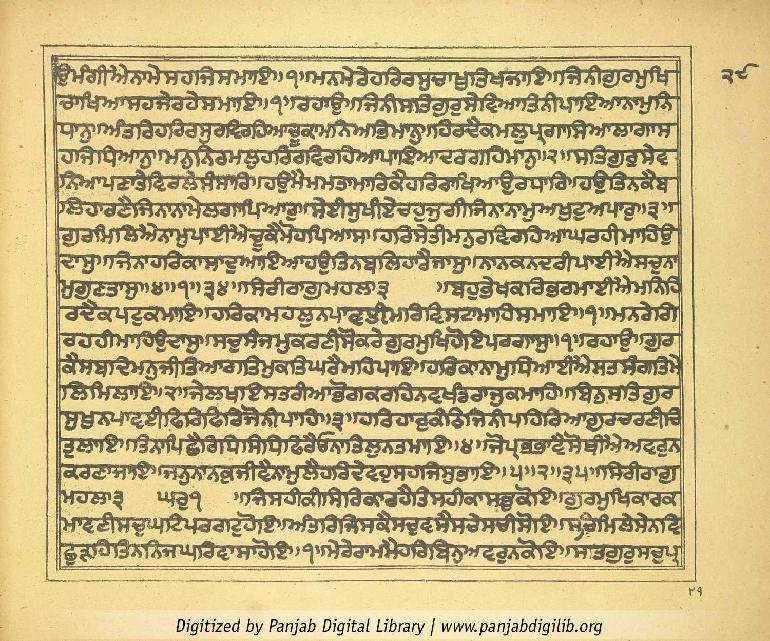 ੨੬
ਉਮੰਗੀਐਨਾਮੇਸਹਜਿਸਮਾਇ॥੧॥ਮਨਮੇਰੇਹਰਿਰਸੁਚਾਖੁਤਿਖਜਾਇ॥ਜਿਨੀਗੁਰਮੁਖਿ
ਚਾਖਿਆਸਹਜੇਰਹੇਸਮਾਇ॥੧॥ਰਹਾਉ॥ਜਿਨੀਸਤਿਗੁਰੁਸੇਵਿਆਤਿਨੀਪਾਇਆਨਾਮੁਨਿ
ਧਾਨੁ॥ਅੰਤਰਿਹਰਿਰਸੁਰਵਿਰਹਿਆਚੂਕਾਮਨਿਅਭਿਮਾਨੁ॥ਹਿਰਦੈਕਮਲੁਪ੍ਰਗਾਸਿਆਲਾਗਾਸ
ਹਜਿਧਿਆਨੁ॥ਮਨੁਨਿਰਮਲੁਹਰਿਰਵਿਰਹਿਆਪਾਇਆਦਰਗਹਿਮਾਨੁ॥੨॥ਸਤਿਗੁਰੁਸੇਵ
ਨਿਆਪਣਾਤੇਵਿਰਲੇਸੰਸਾਰਿ॥ਹਉਮੈਮਮਤਾਮਾਰਿਕੈਹਰਿਰਾਖਿਆਉਰਧਾਰਿ॥ਹਉਤਿਨਕੈਬ
ਲਿਹਾਰਣੈਜਿਨਾਨਾਮੇਲਗਾਪਿਆਰੁ॥ਸੇਈਸੁਖੀਏਚਹੁਜੁਗੀਜਿਨਾਨਾਮੁਅਖੁਟੁਅਪਾਰੁ॥੩॥
ਗੁਰਮਿਲਿਐਨਾਮੁਪਾਈਐਚੂਕੈਮੋਹਪਿਆਸ॥ਹਰਿਸੇਤੀਮਨੁਰਵਿਰਹਿਆਘਰਹੀਮਾਹਿਉ
ਦਾਸੁ॥ਜਿਨਾਹਰਿਕਾਸਾਦੁਆਇਆਹਉਤਿਨਬਲਿਹਾਰੈਜਾਸੁ॥ਨਾਨਕਨਦਰੀਪਾਈਐਸਚੁਨਾ
ਮੁਗੁਣਤਾਸੁ॥੪॥੧॥੩੪॥ਸਿਰੀਰਾਗੁਮਹਲਾ੩ ॥ਬਹੁਭੇਖਕਰਿਭਰਮਾਈਐਮਨਿਹਿ
ਰਦੈਕਪਟੁਕਮਾਇ॥ਹਰਿਕਾਮਹਲੁਨਪਾਵਈਮਰਿਵਿਸਟਾਮਾਹਿਸਮਾਇ॥੧॥ਮਨਰੇਗ੍ਰਿ
ਹਹੀਮਾਹਿਉਦਾਸੁ॥ਸਚੁਸੰਜਮੁਕਰਣੀਸੋਕਰੇਗੁਰਮੁਖਿਹੋਇਪਰਗਾਸੁ॥੧॥ਰਹਾਉ॥ਗੁਰ
ਕੈਸਬਦਿਮਨੁਜੀਤਿਆਗਤਿਮੁਕਤਿਘਰੈਮਹਿਪਾਇ॥ਹਰਿਕਾਨਾਮੁਧਿਆਈਐਸਤਸੰਗਤਿਮੇ
ਲਿਮਿਲਾਇ॥੨॥ਜੇਲਖਇਸਤਰੀਆਭੋਗਕਰਹਿਨਵਖੰਡਰਾਜੁਕਮਾਹਿ॥ਬਿਨੁਸਤਿਗੁਰ
ਸੁਖੁਨਪਾਵਈਫਿਰਿਫਿਰਿਜੋਨੀਪਾਹਿ॥੩॥ਹਰਿਹਾਰੁਕੰਠਿਜਿਨੀਪਹਿਰਿਆਗੁਰਚਰਣੀਚਿ
ਤੁਲਾਇ॥ਤਿਨਾਪਿਛੈਰਿਧਿਸਿਧਿਫਿਰੈਓਨਾਤਿਲੁਨਤਮਾਇ॥੪॥ਜੋਪ੍ਰਭਭਾਵੈਸੋਥੀਐਅਵਰੁਨ
ਕਰਣਾਜਾਇ॥ਜਨੁਨਾਨਕੁਜੀਵੈਨਾਮੁਲੈਹਰਿਦੇਵਹੁਸਹਜਿਸੁਭਾਇ॥੫॥੨॥੩੫॥ਸਿਰੀਰਾਗੁ
ਮਹਲਾ੩ ਘਰੁ੧ ॥ਜਿਸਹੀਕੀਸਿਰਕਾਰਹੈਤਿਸਹੀਕਾਸਭੁਕੋਇ॥ਗੁਰਮੁਖਿਕਾਰਕ
ਮਾਵਣੀਸਚੁਘਟਿਪਰਗਟੁਹੋਇ॥ਅੰਤਰਿਜਿਸਕੈਸਚੁਵਸੈਸਚੇਸਚੀਸੋਇ॥ਸਚਿਮਿਲੇਸੇਨਵਿ
ਛੁੜਹਿਤਿਨਨਿਜਘਰਿਵਾਸਾਹੋਇ॥੧॥ਮੇਰੇਰਾਮਮੈਹਰਿਬਿਨੁਅਵਰੁਨਕੋਇ॥ਸਤਗੁਰੁਸਚੁਪ੍ਰ
Digitized by Panjab Digital Library | www.panjabdigilib.org